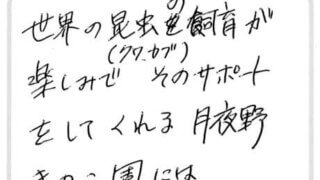 世界の昆虫の飼育が
(クワ.カブ)
楽しみで そのサポート
をしてくれる 月夜野
きのこ園には